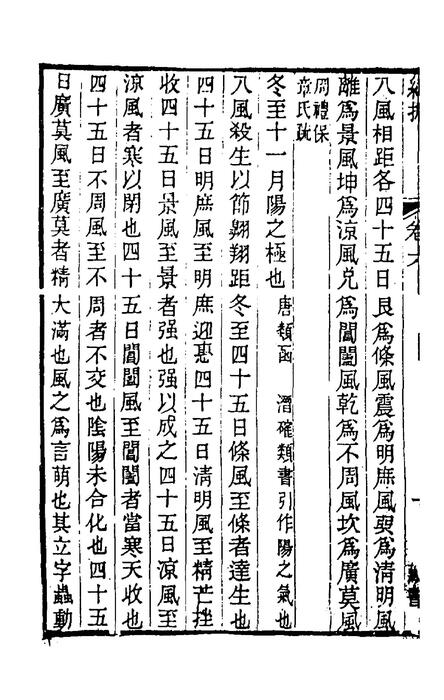 卷六
八風相距各四十五日艮爲條風震爲明庶風巽爲清明風
離爲景風坤爲涼風兌爲閶闔風乾爲不周風坎爲廣莫風
周禮保
章氏疏
冬至十一月陽之極也 唐類函 潛確類書引作陽之氣也
八風殺生以節翺翔距冬至四十五日條風至條者達生也
四十五日明庶風至明庶迎惠四十五日清明風至精芒挫
收四十五日景風至景者强也强以成之四十五日涼風至
涼風者寒以閉也四十五日閶闔風至閶闔者當寒天收也
四十五日不周風至不周者不交也陰陽未合化也四十五
日廣莫風至廣莫者精大滿也風之爲言萌也其立字蟲動